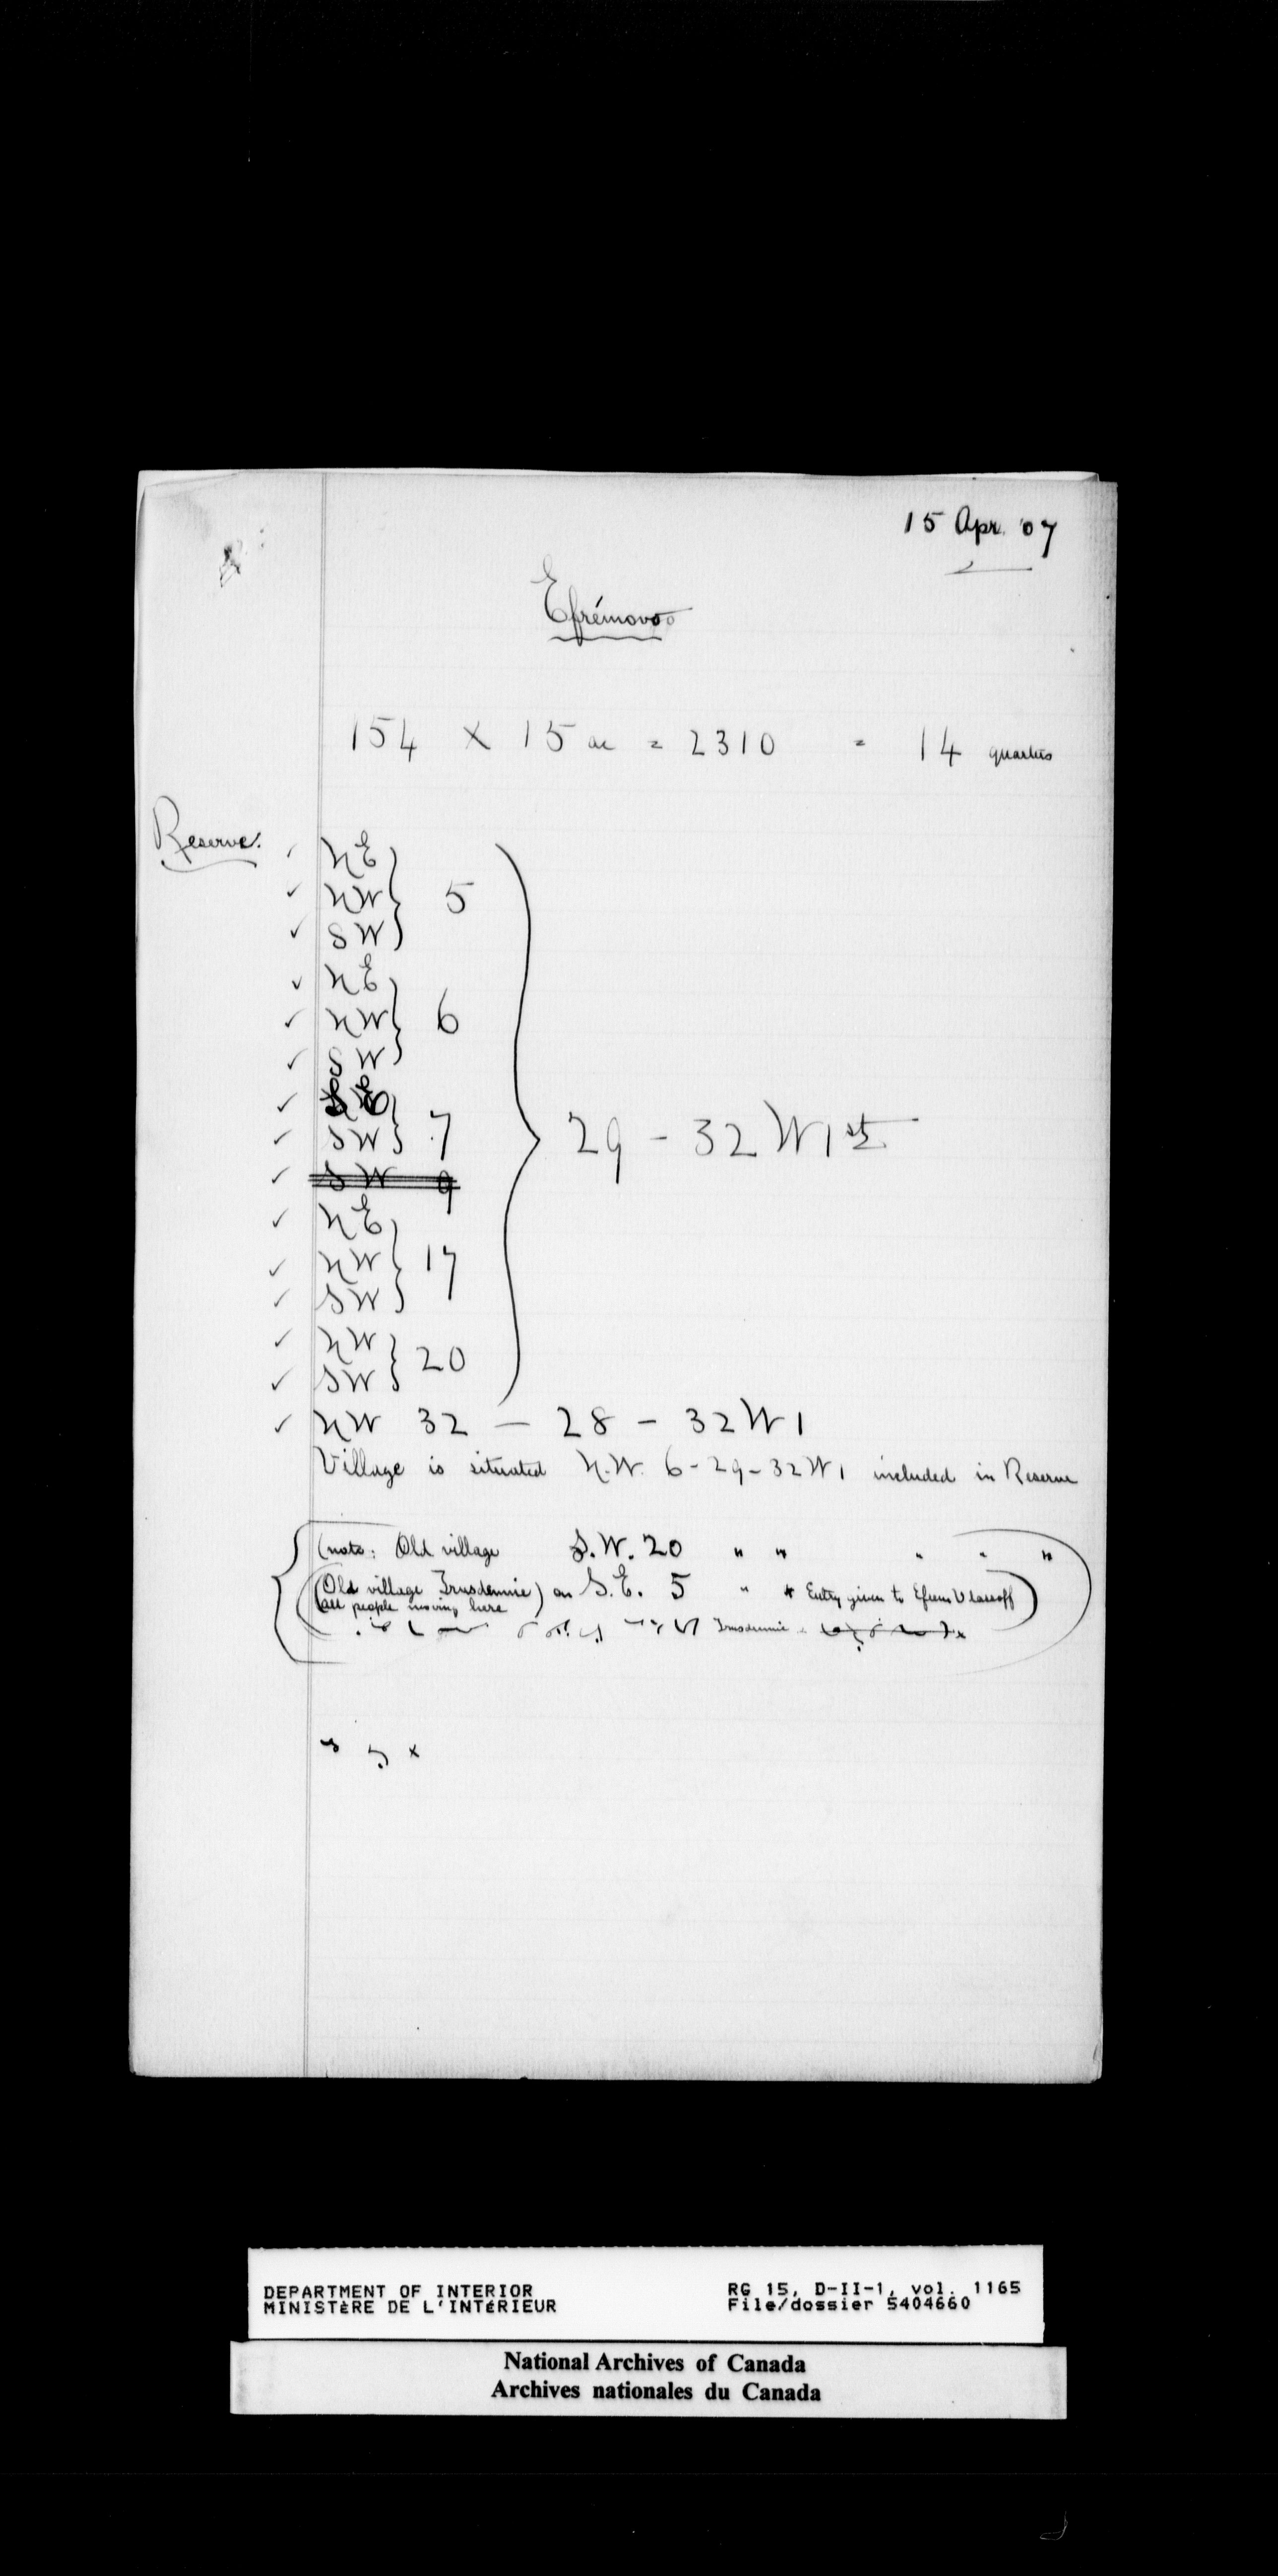 15 Apr. '07
Efrémovo
154 X 15 ac = 2310 = 14 quarters
Reserve.
✓ NE
✓ NW } 5
✓ SW
✓ NE
✓ NW } 6
✓ SW
✓ SE
✓ SW } 7
✓ SW 9
✓ NE
✓ NW } 17
✓ SW
✓ NW
✓ SW } 20
29 - 32 W 1st
✓ NW 32 — 28 - 32 W 1
Village is situated N.W. 6-29-32 W 1 included in Reserve
(note: Old village S.W. 20 " " " " "
(Old village Trusdennie) on S.E. 5 " * Entry given to Efrem Vlasoff)
all people moving here
Trusdennie
DEPARTMENT OF INTERIOR
MINISTèRE DE L'INTéRIEUR
RG 15, D-II-1, vol. 1165
File/dossier 5404660
National Archives of Canada
Archives nationales du Canada